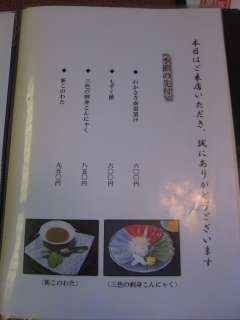 本日はご来店いただき、誠にありがとうございます
季節の先付
◆ わかさぎ南蛮漬け 六〇〇円
◆ もずく酢 六〇〇円
◆ 三色の刺身こんにゃく 八五〇円
◆ 新このわた 九五〇円
(新このわた)
(三色の刺身こんにゃく)